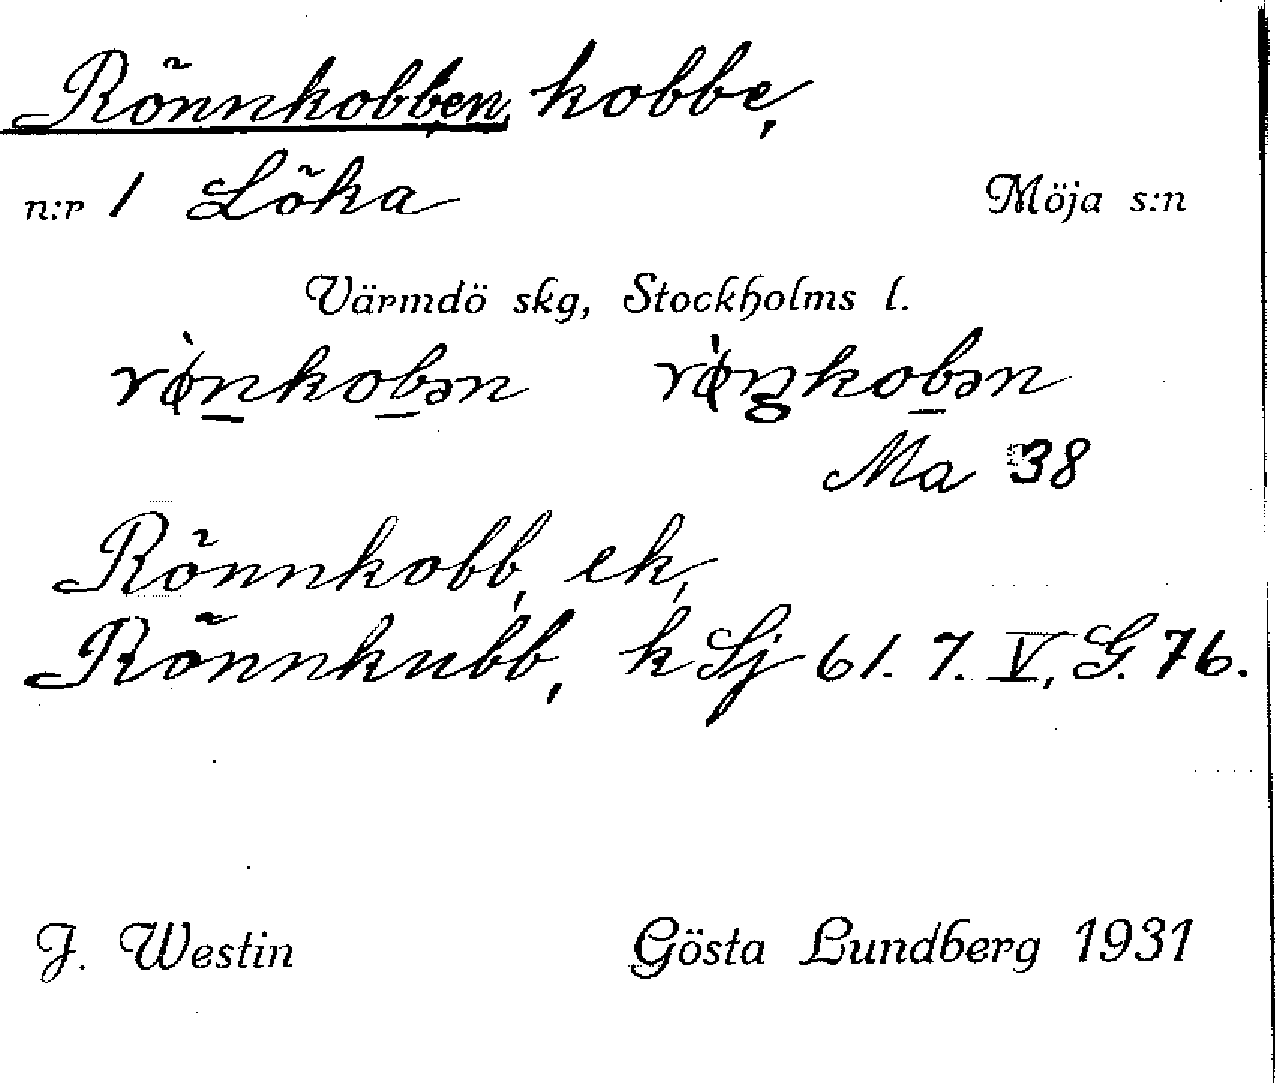 Rõnnkobben, kobbe,
n:r 1 Lõka Möja s:n
Värmdö skg, Stockholms l.
Ma 38
Rõnnkobb, ek,
Rõnnkubb, k Sj 61. 7. V, G. 76.
J. Westin Gösta Lundberg 1931